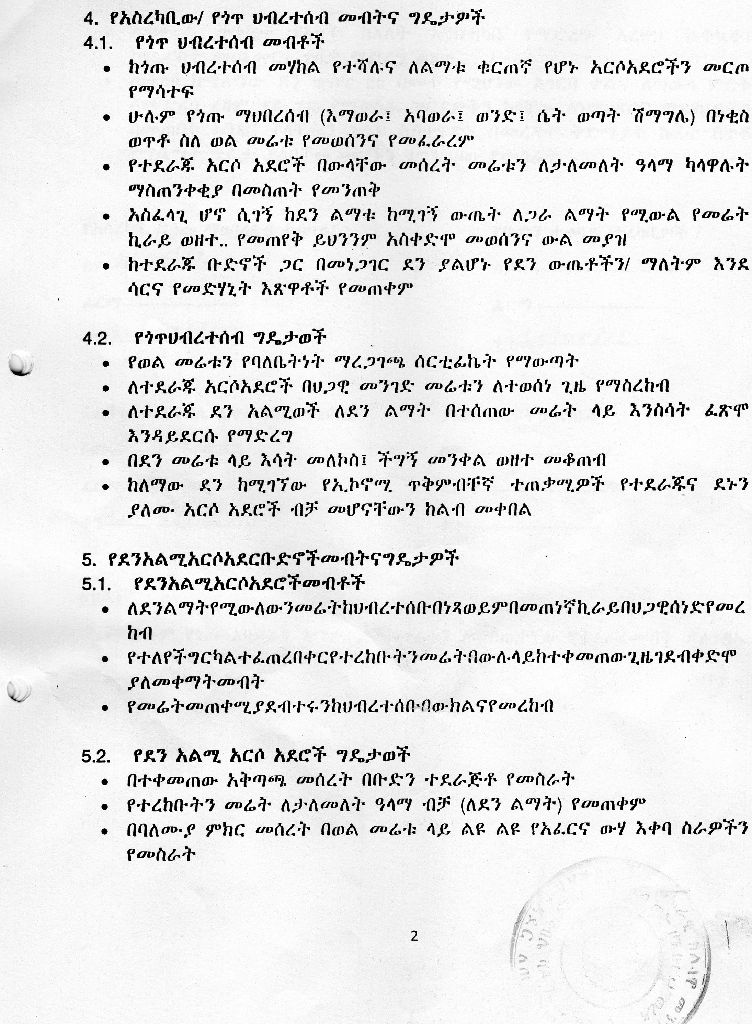 4. የአስረካቢው/ የጎጥ ህብረተሰብ መብትና ግዴታዎች
4.1. የጎጥ ህብረተሰብ መብቶች
• ከጎጡ ህብረተሰብ መሃከል የተሻሉና ለልማቱ ቁርጠኛ የሆኑ አርሶአደሮችን መርጦ
የማሳተፍ
• ሁሉም የጎጡ ማህበረሰብ (እማወራ፤ አባወራ፤ ወንድ፤ ሴት ወጣት ሽማግሌ) በነቂስ
ወጥቶ ስለ ወል መሬቱ የመወሰንና የመፈራረም
• የተደራጁ አርሶ አደሮች በውላቸው መሰረት መሬቱን ለታለመለት ዓላማ ካላዋሉት
ማስጠንቀቂያ በመስጠት የመንጠቅ
• አስፈላጊ ሆኖ ሲገኝ ከደን ልማቱ ከሚገኝ ውጤት ለጋራ ልማት የሚውል የመሬት
ኪራይ ወዘተ.. የመጠየቅ ይህንንም አስቀድሞ መወሰንና ውል መያዝ
• ከተደራጁ ቡድኖች ጋር በመነጋገር ደን ያልሆኑ የደን ውጤቶችን/ ማለትም እንደ
ሳርና የመድሃኒት እጸዋቶች የመጠቀም
4.2. የጎጥህብረተሰብ ግዴታወች
• የወል መሬቱን የባለቤትነት ማረጋገጫ ሰርቲፊኬት የማውጣት
• ለተደራጁ አርሶአደሮች በህጋዊ መንገድ መሬቱን ለተወሰነ ጊዜ የማስረከብ
• ለተደራጁ ደን አልሚወች ለደን ልማት በተሰጠው መሬት ላይ እንስሳት ፈጽሞ
እንዳይደርሱ የማድረግ
• በደን መሬቱ ላይ እሳት መለኮስ፤ ችግኝ መንቀል ወዘተ መቆጠብ
• ከለማው ደን ከሚገኘው የኢኮኖሚ ጥቅምብቸኛ ተጠቃሚዎች የተደራጁና ደኑን
ያለሙ አርሶ አደሮች ብቻ መሆናቸውን ከልብ መቀበል
5. የደንአልሚአርሶአደርቡድኖችመብትናግዴታዎች
5.1. የደንአልሚአርሶአደሮችመብቶች
• ለደንልማትየሚውለውንመሬትከህብረተሰቡበነጻወይምበመጠነኛኪራይበህጋዊሰነድየመረ
ከብ
• የተለየችግርካልተፈጠረበቀርየተረከቡትንመሬትበውሉላይከተቀመጠውጊዜገደብቀድሞ
ያለመቀማትመብት
• የመሬትመጠቀሚያደብተሩንከህብረተሰቡበውክልናየመረከብ
5.2. የደን አልሚ አርሶ አደሮች ግዴታወች
• በተቀመጠው አቅጣጫ መሰረት በቡድን ተደራጅቶ የመስራት
• የተረከቡትን መሬት ለታለመለት ዓላማ ብቻ (ለደን ልማት) የመጠቀም
• በባለሙያ ምክር መሰረት በወል መሬቱ ላይ ልዩ ልዩ የአፈርና ውሃ እቀባ ስራዎችን
የመስራት
2